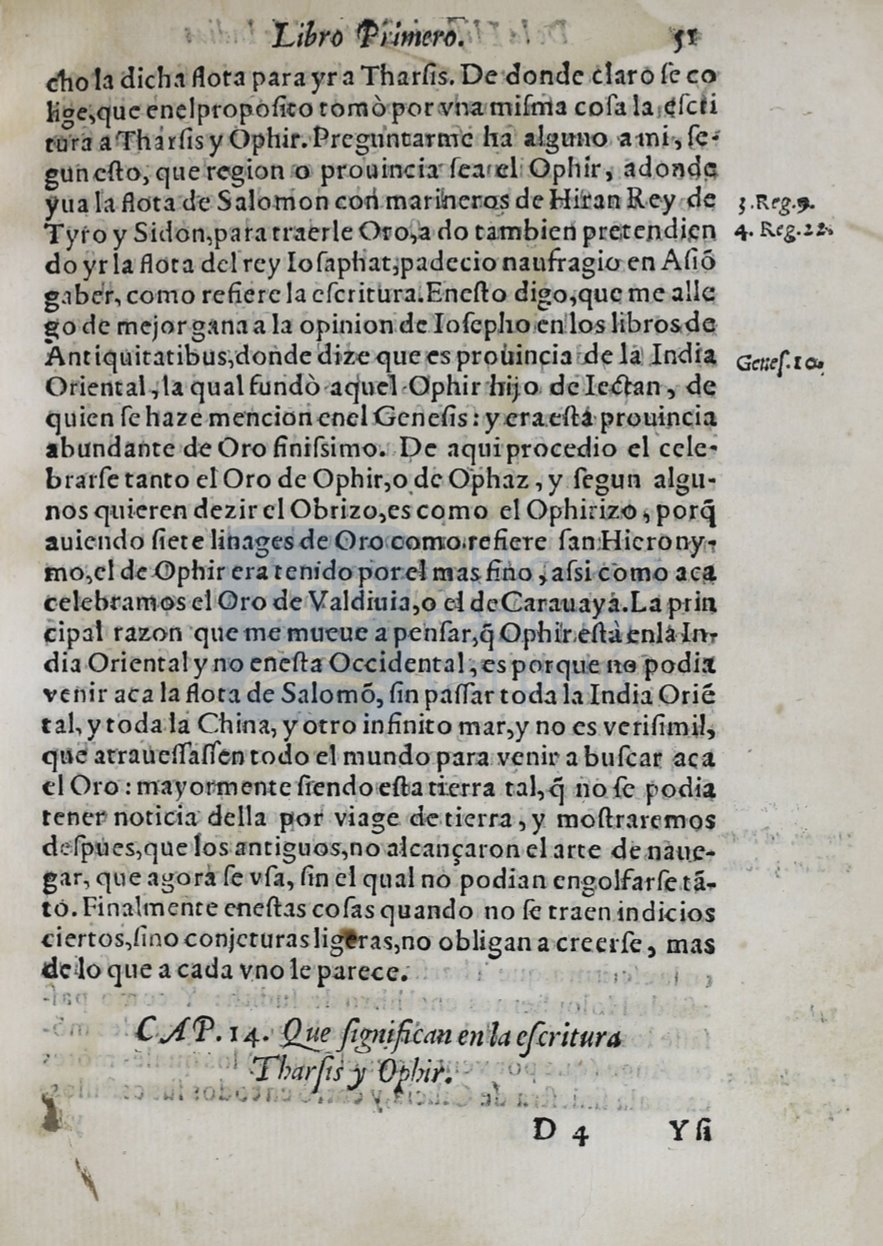 Libro Primero. 51
cho la dicha flota para yr a Tharſis. De donde claro ſe co
lige, que enel propoſito tomò por vna miſma coſa la eſcri
tura a Tharſis y Ophir. Preguntarme ha alguno a mi, ſe-
gun eſto, que region o prouincia ſea el Ophir, adonde
yua la flota de Salomon con marineros de Hiran Rey de
3. Reg. 9.
Tyro y Sidon, para traerle Oro, a do tambien pretendien
4. Reg. 22.
do yr la flota del rey Ioſaphat, padecio naufragio en Aſiõ
gaber, como refiere la eſcritura. Eneſto digo, que me alle
go de mejor gana a la opinion de Ioſepho en los libros de
Antiquitatibus, donde dize que es prouincia de la India
Geneſ. 10.
Oriental, la qual fundò aquel Ophir hijo de Iectan, de
quien ſe haze mencion enel Geneſis: y era eſta prouincia
abundante de Oro finiſsimo. De aqui procedio el cele-
brarſe tanto el Oro de Ophir, o de Ophaz, y ſegun algu-
nos quieren dezir el Obrizo, es como el Ophirizo, porq̃
auiendo ſiete linages de Oro como refiere ſan Hierony-
mo, el de Ophir era tenido por el mas fino, aſsi como aca
celebramos el Oro de Valdiuia, o el de Carauaya. La prin
cipal razon que me mueue a penſar, q̃ Ophir eſtà enla In-
dia Oriental y no eneſta Occidental, es porque no podia
venir aca la flota de Salomõ, ſin paſſar toda la India Oriẽ
tal, y toda la China, y otro infinito mar, y no es veriſimil,
que atraueſſaſſen todo el mundo para venir a buſcar aca
el Oro: mayormente ſiendo eſta tierra tal, q̃ no ſe podia
tener noticia della por viage de tierra, y moſtraremos
deſpues, que los antiguos, no alcançaron el arte de naue-
gar, que agora ſe vſa, ſin el qual no podian engolfarſe tã-
to. Finalmente eneſtas coſas quando no ſe traen indicios
ciertos, ſino conjeturas ligeras, no obligan a creerſe, mas
de lo que a cada vno le parece.
CAP. 14. Que ſignifican en la eſcritura
Tharſis y Ophir.
D 4 Y ſi